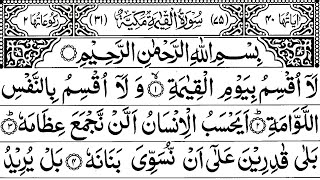 اٰيَاتُهَا ٤٠ (٧٥) سُوْرَةُ الْقِيٰمَةِ مَكِّيَّةٌ (٣١) رُكُوْعَاتُهَا ٢
بِسْمِ اللّٰهِ الرَّحْمٰنِ الرَّحِيْمِ
لَاۤ اُقْسِمُ بِيَوْمِ الْقِيٰمَةِ ١ وَ لَاۤ اُقْسِمُ بِالنَّفْسِ
اللَّوَّامَةِ ٢ اَيَحْسَبُ الْاِنْسَانُ اَلَّنْ نَّجْمَعَ عِظَامَهٗ ٣
بَلٰى قٰدِرِيْنَ عَلٰۤى اَنْ نُّسَوِّيَ بَنَانَهٗ ٤ بَلْ يُرِيْدُ